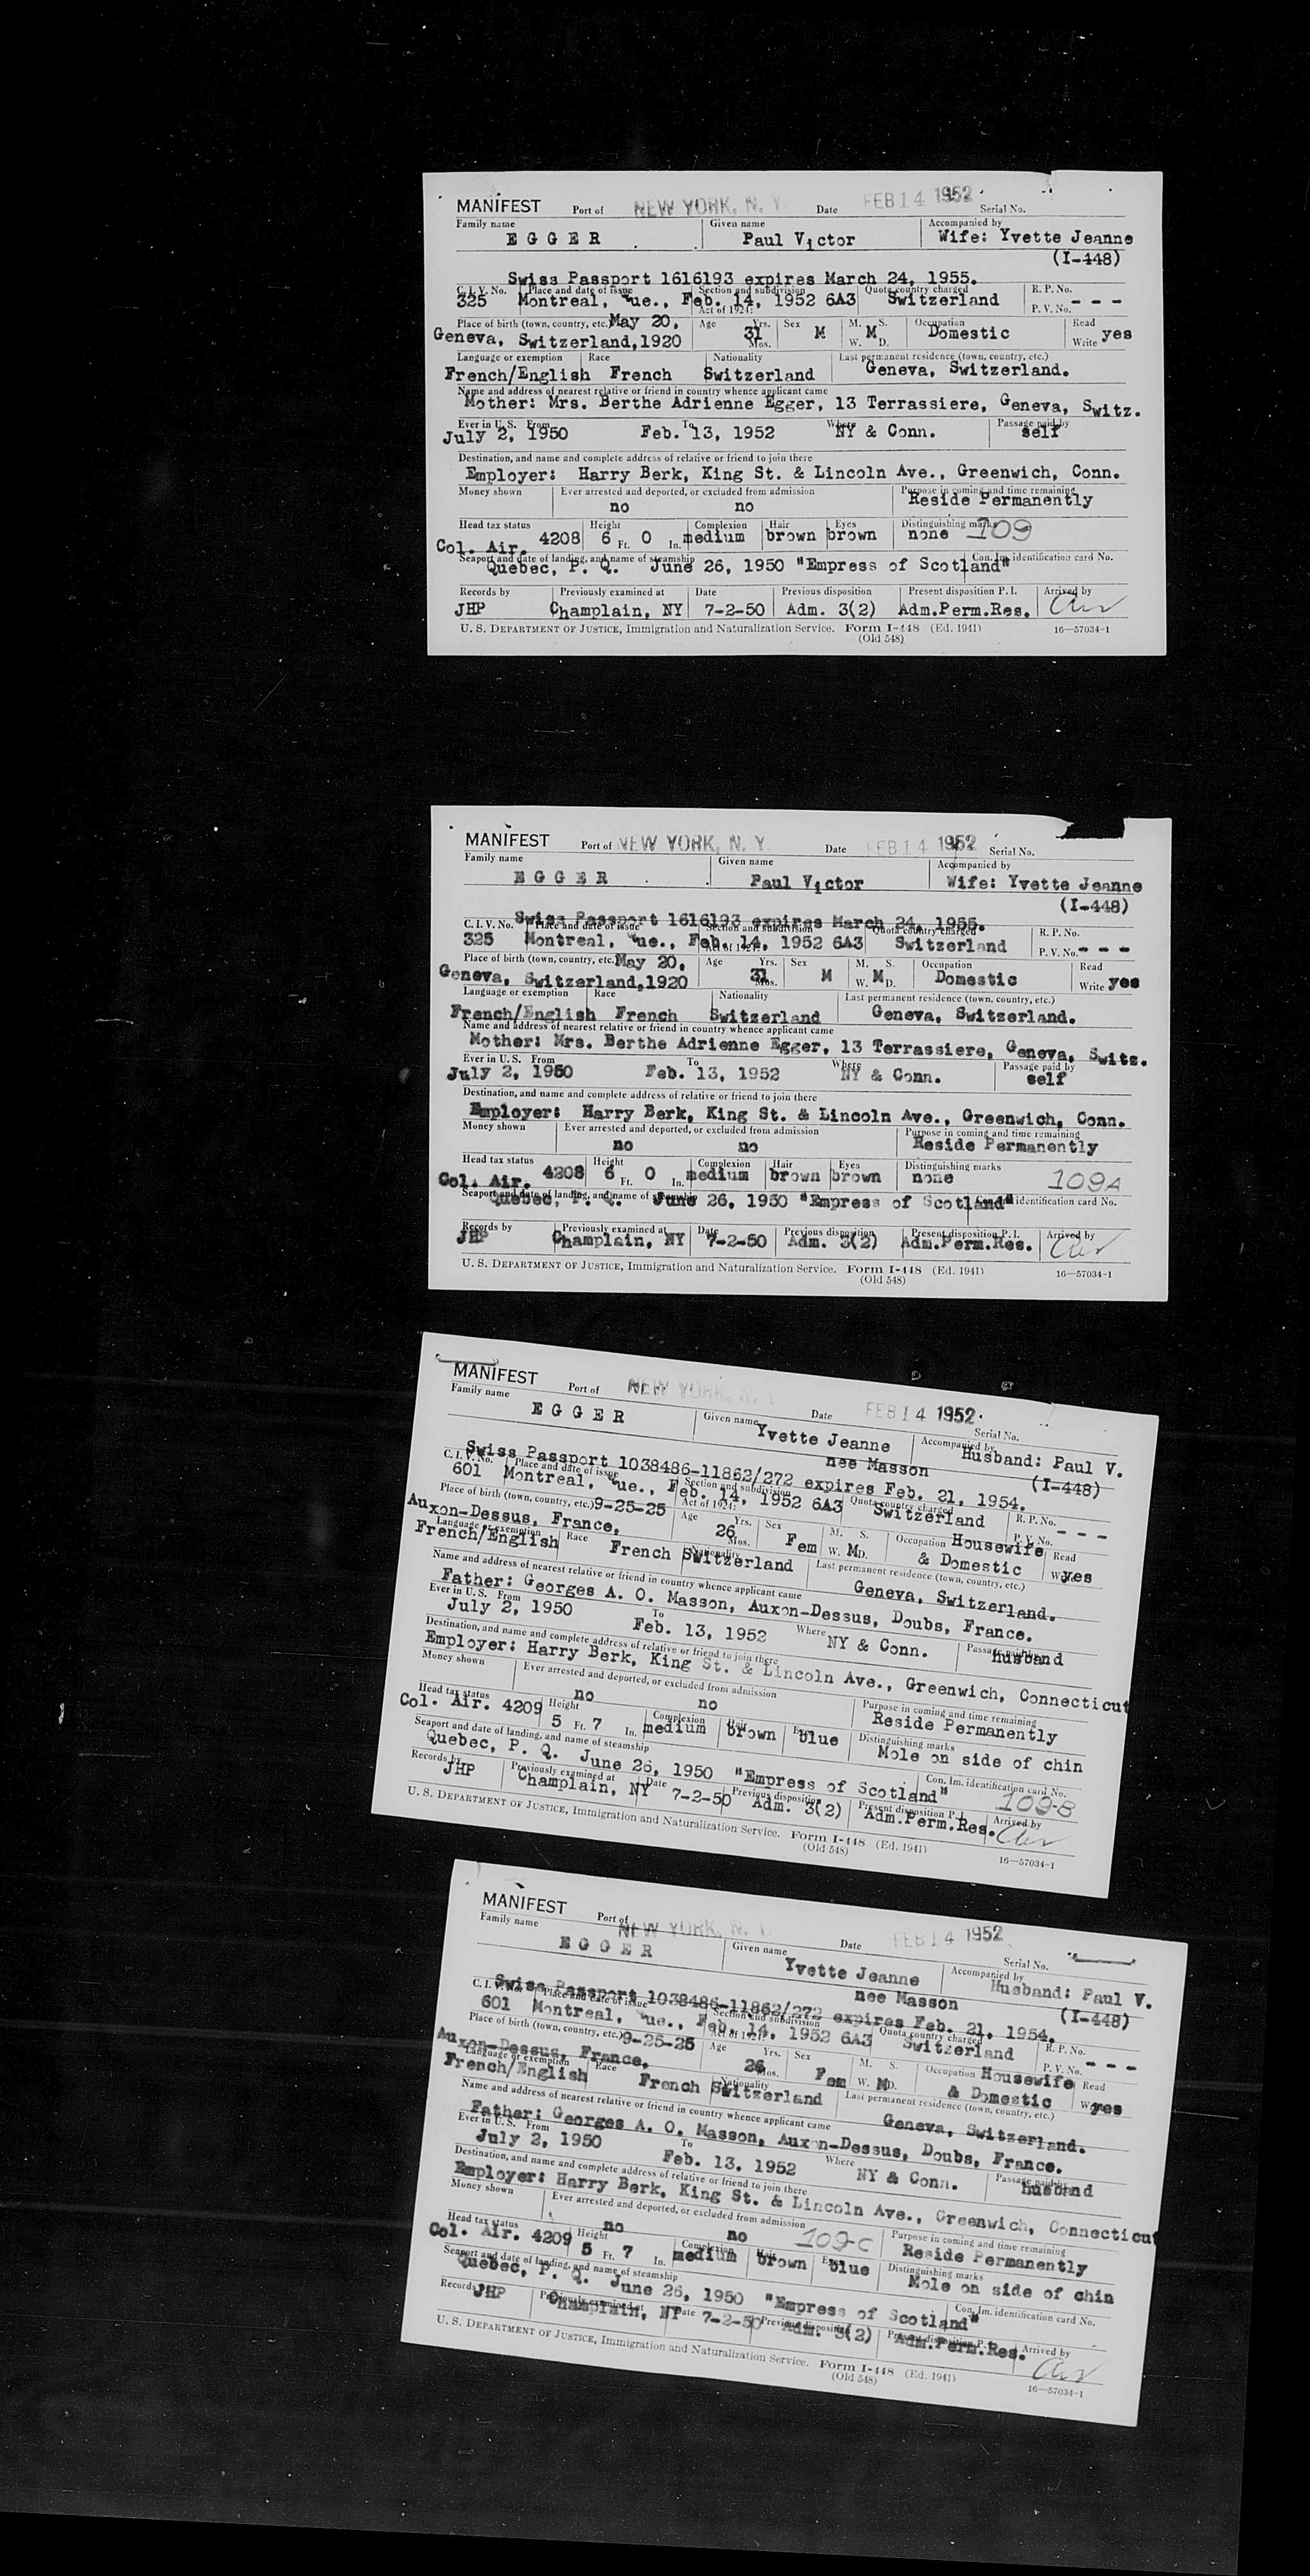 MANIFEST Port of NEW YORK, N. Y. Date FEB 14 1952 Serial No.
Family name Given name Accompanied by
EGGER Paul Victor Wife: Yvette Jeanne
(I-448)
Swiss Passport 1616193 expires March 24, 1955.
C. I. V. No. Place and date of issue Section and subdivision Act of 1924: Quota country charged R. P. No.
325 Montreal, Que., Feb. 14, 1952 6A3 Switzerland P. V. No. - - -
Place of birth (town, country, etc.) May 20, Age Yrs. Sex M. S. Occupation Read
Geneva, Switzerland, 1920 31 Mos. M W. M D. Domestic Write yes
Language or exemption Race Nationality Last permanent residence (town, country, etc.)
French/English French Switzerland Geneva, Switzerland.
Name and address of nearest relative or friend in country whence applicant came
Mother: Mrs. Berthe Adrienne Egger, 13 Terrassiere, Geneva, Switz.
Ever in U. S. From To Where Passage paid by
July 2, 1950 Feb. 13, 1952 NY & Conn. self
Destination, and name and complete address of relative or friend to join there
Employer: Harry Berk, King St. & Lincoln Ave., Greenwich, Conn.
Money shown Ever arrested and deported, or excluded from admission Purpose in coming and time remaining
no no Reside Permanently
Head tax status Height Complexion Hair Eyes Distinguishing marks
Col. Air. 4208 6 Ft. 0 In. medium brown brown none 109
Seaport and date of landing, and name of steamship Con. Im. identification card No.
Quebec, P. Q. June 26, 1950 "Empress of Scotland"
Records by Previously examined at Date Previous disposition Present disposition P. I. Arrived by
JHP Champlain, NY 7-2-50 Adm. 3(2) Adm.Perm.Res.
U. S. DEPARTMENT OF JUSTICE, Immigration and Naturalization Service. Form I-448 (Ed. 1941) 16—57034-1
(Old 548)
MANIFEST Port of NEW YORK, N. Y. Date FEB 14 1952 Serial No.
Family name Given name Accompanied by
EGGER Paul Victor Wife: Yvette Jeanne
(I-448)
Swiss Passport 1616193 expires March 24, 1955.
C. I. V. No. Place and date of issue Section and subdivision Act of 1924: Quota country charged R. P. No.
325 Montreal, Que., Feb. 14, 1952 6A3 Switzerland P. V. No. - - -
Place of birth (town, country, etc.) May 20, Age Yrs. Sex M. S. Occupation Read
Geneva, Switzerland, 1920 31 Mos. M W. M D. Domestic Write yes
Language or exemption Race Nationality Last permanent residence (town, country, etc.)
French/English French Switzerland Geneva, Switzerland.
Name and address of nearest relative or friend in country whence applicant came
Mother: Mrs. Berthe Adrienne Egger, 13 Terrassiere, Geneva, Switz.
Ever in U. S. From To Where Passage paid by
July 2, 1950 Feb. 13, 1952 NY & Conn. self
Destination, and name and complete address of relative or friend to join there
Employer: Harry Berk, King St. & Lincoln Ave., Greenwich, Conn.
Money shown Ever arrested and deported, or excluded from admission Purpose in coming and time remaining
no no Reside Permanently
Head tax status Height Complexion Hair Eyes Distinguishing marks
Col. Air. 4208 6 Ft. 0 In. medium brown brown none 109A
Seaport and date of landing, and name of steamship identification card No.
Quebec, P. Q. June 26, 1950 "Empress of Scotland"
Records by Previously examined at Date Previous disposition Present disposition P. I. Arrived by
JHP Champlain, NY 7-2-50 Adm. 3(2) Adm.Perm.Res.
U. S. DEPARTMENT OF JUSTICE, Immigration and Naturalization Service. Form I-448 (Ed. 1941) 16—57034-1
(Old 548)
MANIFEST Port of NEW YORK, N. Y. Date FEB 14 1952 Serial No.
Family name Given name Accompanied by
EGGER Yvette Jeanne Husband: Paul V.
nee Masson (I-448)
Swiss Passport 1038486-11862/272 expires Feb. 21, 1954.
C. I. V. No. Place and date of issue Section and subdivision Act of 1924: Quota country charged R. P. No.
601 Montreal, Que., Feb. 14, 1952 6A3 Switzerland P. V. No. - - -
Place of birth (town, country, etc.) 9-25-25 Age Yrs. Sex M. S. Occupation Housewife Read
Auxon-Dessus, France, 26 Mos. Fem W. M D. & Domestic yes
Language or exemption Race Nationality Last permanent residence (town, country, etc.)
French/English French Switzerland Geneva, Switzerland.
Name and address of nearest relative or friend in country whence applicant came
Father: Georges A. O. Masson, Auxon-Dessus, Doubs, France.
Ever in U. S. From To Where Passage paid by
July 2, 1950 Feb. 13, 1952 NY & Conn. husband
Destination, and name and complete address of relative or friend to join there
Employer: Harry Berk, King St. & Lincoln Ave., Greenwich, Connecticut
Money shown Ever arrested and deported, or excluded from admission Purpose in coming and time remaining
no no Reside Permanently
Head tax status Height Complexion Hair Eyes Distinguishing marks
Col. Air. 4209 5 Ft. 7 In. medium brown blue Mole on side of chin
Seaport and date of landing, and name of steamship Con. Im. identification card No.
Quebec, P. Q. June 26, 1950 "Empress of Scotland" 109-B
Records by Previously examined at Date Previous disposition Present disposition P. I. Arrived by
JHP Champlain, NY 7-2-50 Adm. 3(2) Adm.Perm.Res.
U. S. DEPARTMENT OF JUSTICE, Immigration and Naturalization Service. Form I-448 (Ed. 1941) 16—57034-1
(Old 548)
MANIFEST Port of NEW YORK, N. Y. Date FEB 14 1952 Serial No.
Family name Given name Accompanied by
EGGER Yvette Jeanne Husband: Paul V.
nee Masson (I-448)
Swiss Passport 1038486-11862/272 expires Feb. 21, 1954.
C. I. V. No. Place and date of issue Section and subdivision Act of 1924: Quota country charged R. P. No.
601 Montreal, Que., Feb. 14, 1952 6A3 Switzerland P. V. No. - - -
Place of birth (town, country, etc.) 9-25-25 Age Yrs. Sex M. S. Occupation Housewife Read
Auxon-Dessus, France, 26 Mos. Fem W. M D. & Domestic yes
Language or exemption Race Nationality Last permanent residence (town, country, etc.)
French/English French Switzerland Geneva, Switzerland.
Name and address of nearest relative or friend in country whence applicant came
Father: Georges A. O. Masson, Auxon-Dessus, Doubs, France.
Ever in U. S. From To Where Passage paid by
July 2, 1950 Feb. 13. 1952 NY & Conn. husband
Destination, and name and complete address of relative or friend to join there
Employer: Harry Berk, King St. & Lincoln Ave., Greenwich, Connecticut
Money shown Ever arrested and deported, or excluded from admission Purpose in coming and time remaining
no no 109-C Reside Permanently
Head tax status Height Complexion Hair Eyes Distinguishing marks
Col. Air. 4209 5 Ft. 7 In. medium brown blue Mole on side of chin
Seaport and date of landing, and name of steamship Con. Im. identification card No.
Quebec, P. Q. June 26, 1950 "Empress of Scotland"
Records by Previously examined at Date Previous disposition Present disposition P. I. Arrived by
JHP Champlain, NY 7-2-50 Adm. 3(2) Adm.Perm.Res.
U. S. DEPARTMENT OF JUSTICE, Immigration and Naturalization Service. Form I-448 (Ed. 1941) 16—57034-1
(Old 548)